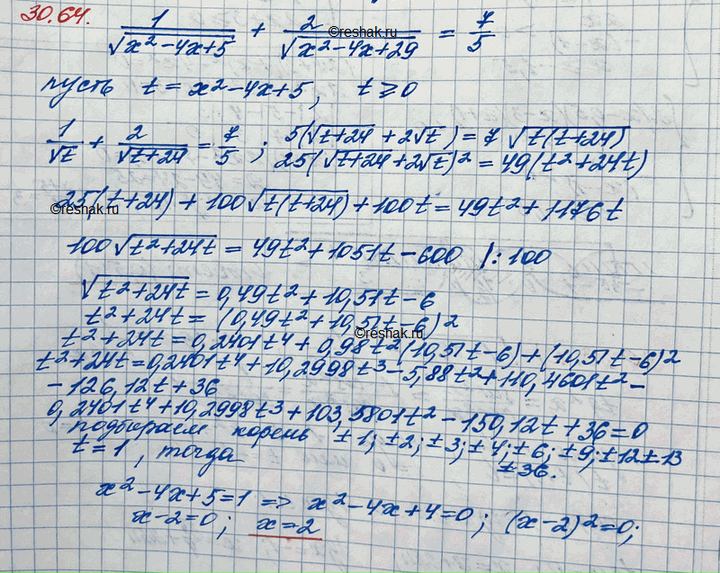 30.64.
1/√(x²-4x+5) + 2/√(x²-4x+29) = 7/5
©reshak.ru
пусть t = x²-4x+5, t ≥ 0
1/√t + 2/√(t+24) = 7/5 ; 5(√(t+24) + 2√t) = 7 √(t(t+24))
25(√(t+24) + 2√t)² = 49(t²+24t)
25(t+24) + 100√(t(t+24)) + 100t = 49t² + 1176t
©reshak.ru
100√(t²+24t) = 49t² + 1051t - 600 |:100
√(t²+24t) = 0,49t² + 10,51t - 6
t²+24t = (0,49t² + 10,51t - 6)²
©reshak.ru
t²+24t = 0,2401t⁴ + 0,98t²(10,51t-6) + (10,51t-6)²
t²+24t = 0,2401t⁴ + 10,2998t³ - 5,88t² + 110,4601t² -
- 126,12t + 36
0,2401t⁴ + 10,2998t³ + 103,5801t² - 150,12t + 36 = 0
подбираем корень ±1; ±2; ±3; ±4; ±6; ±9; ±12 ±13
±36.
t = 1, тогда
x²-4x+5=1 => x²-4x+4=0; (x-2)²=0;
x-2=0; x=2